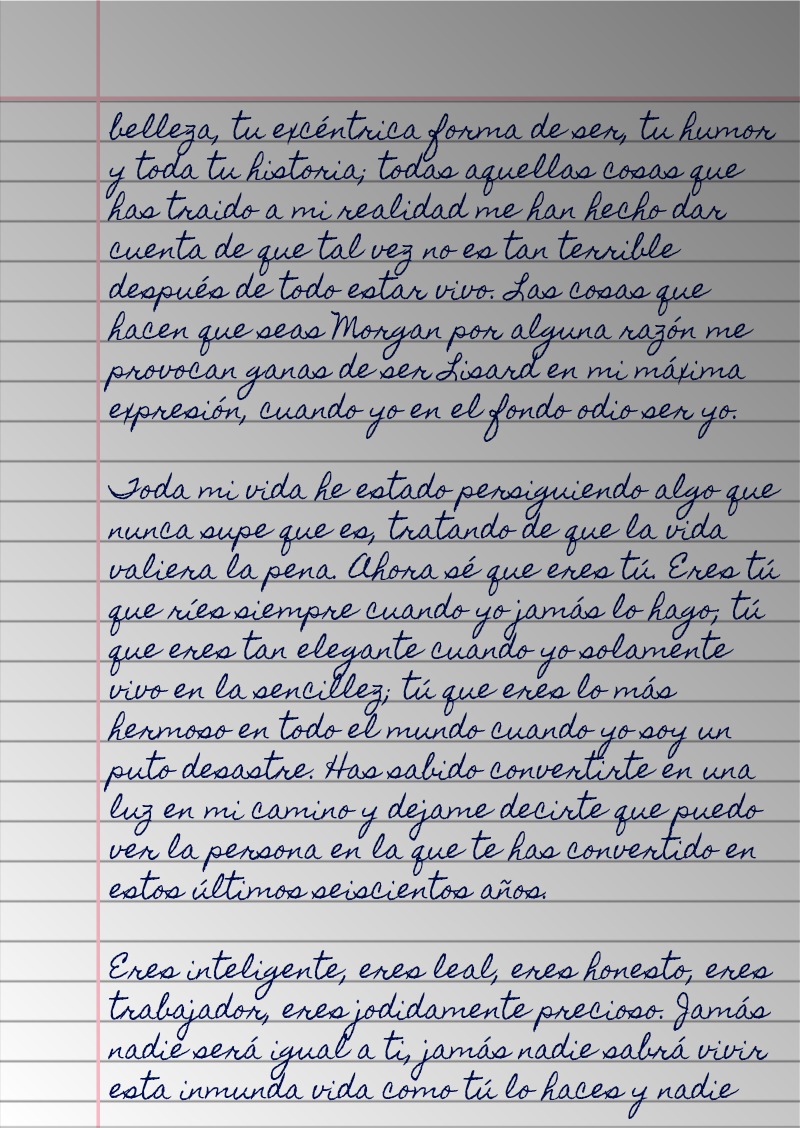 belleza, tu excéntrica forma de ser, tu humor
y toda tu historia; todas aquellas cosas que
has traido a mi realidad me han hecho dar
cuenta de que tal vez no es tan terrible
después de todo estar vivo. Las cosas que
hacen que seas Morgan por alguna razón me
provocan ganas de ser Lisard en mi máxima
expresión, cuando yo en el fondo odio ser yo.
Toda mi vida he estado persiguiendo algo que
nunca supe que es, tratando de que la vida
valiera la pena. Ahora sé que eres tú. Eres tú
que ríes siempre cuando yo jamás lo hago; tú
que eres tan elegante cuando yo solamente
vivo en la sencillez; tú que eres lo más
hermoso en todo el mundo cuando yo soy un
puto desastre. Has sabido convertirte en una
luz en mi camino y dejame decirte que puedo
ver la persona en la que te has convertido en
estos últimos seiscientos años.
Eres inteligente, eres leal, eres honesto, eres
trabajador, eres jodidamente precioso. Jamás
nadie será igual a ti, jamás nadie sabrá vivir
esta inmunda vida como tú lo haces y nadie